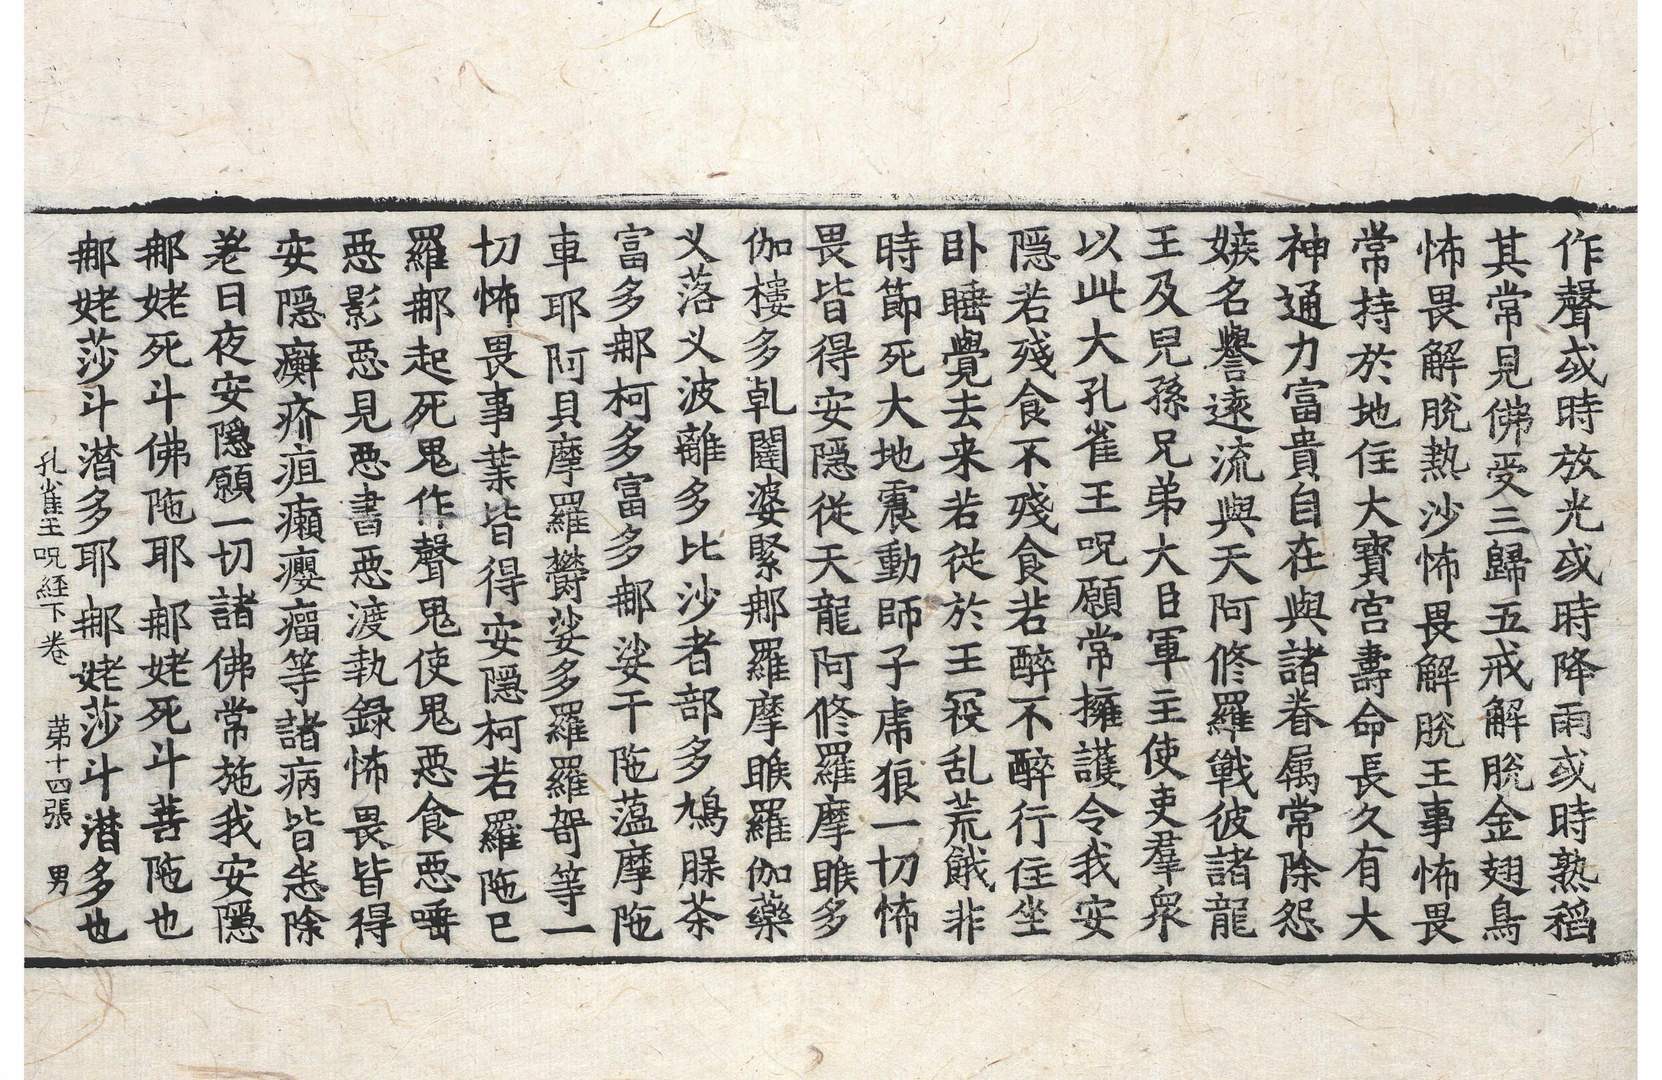 作聲或時放光或時降雨或時熟稻
其常見佛受三歸五戒解脫金翅鳥
怖畏解脫熱沙怖畏解脫王事怖畏
常持於地住大寶宮壽命長久有大
神通力富貴自在與諸眷属常除怨
嫉名譽遠流與天阿修羅戰彼諸龍
王及兒孫兄弟大臣軍主使吏羣衆
以此大孔雀王呪願常擁護令我安
隱若殘食不殘食若醉不醉行住坐
卧睡覺去来若從於王役乱荒餓非
時節死大地震動師子虎狼一切怖
畏皆得安隱從天龍阿修羅摩睺多
伽樓多乹闥婆緊那羅摩睺羅伽藥
义落义波離多比沙者部多鳩腺茶
富多那柯多富多那娑干陁蒀摩陁
車耶阿貝摩羅欝娑多羅羅咢等一
切怖畏事業皆得安隱柯若羅陁巳
羅那起死鬼作聲鬼使鬼惡食惡唾
惡影惡見惡書惡渡執錄怖畏皆得
安隱癬疥疽癩癭瘤等諸病皆悉除
差日夜安隱願一切諸佛常施我安隱
那姥死斗佛陁耶那姥死斗菩陁也
那姥莎斗潛多耶那姥莎斗潛多也
孔雀王呪經下卷　第十四張　男